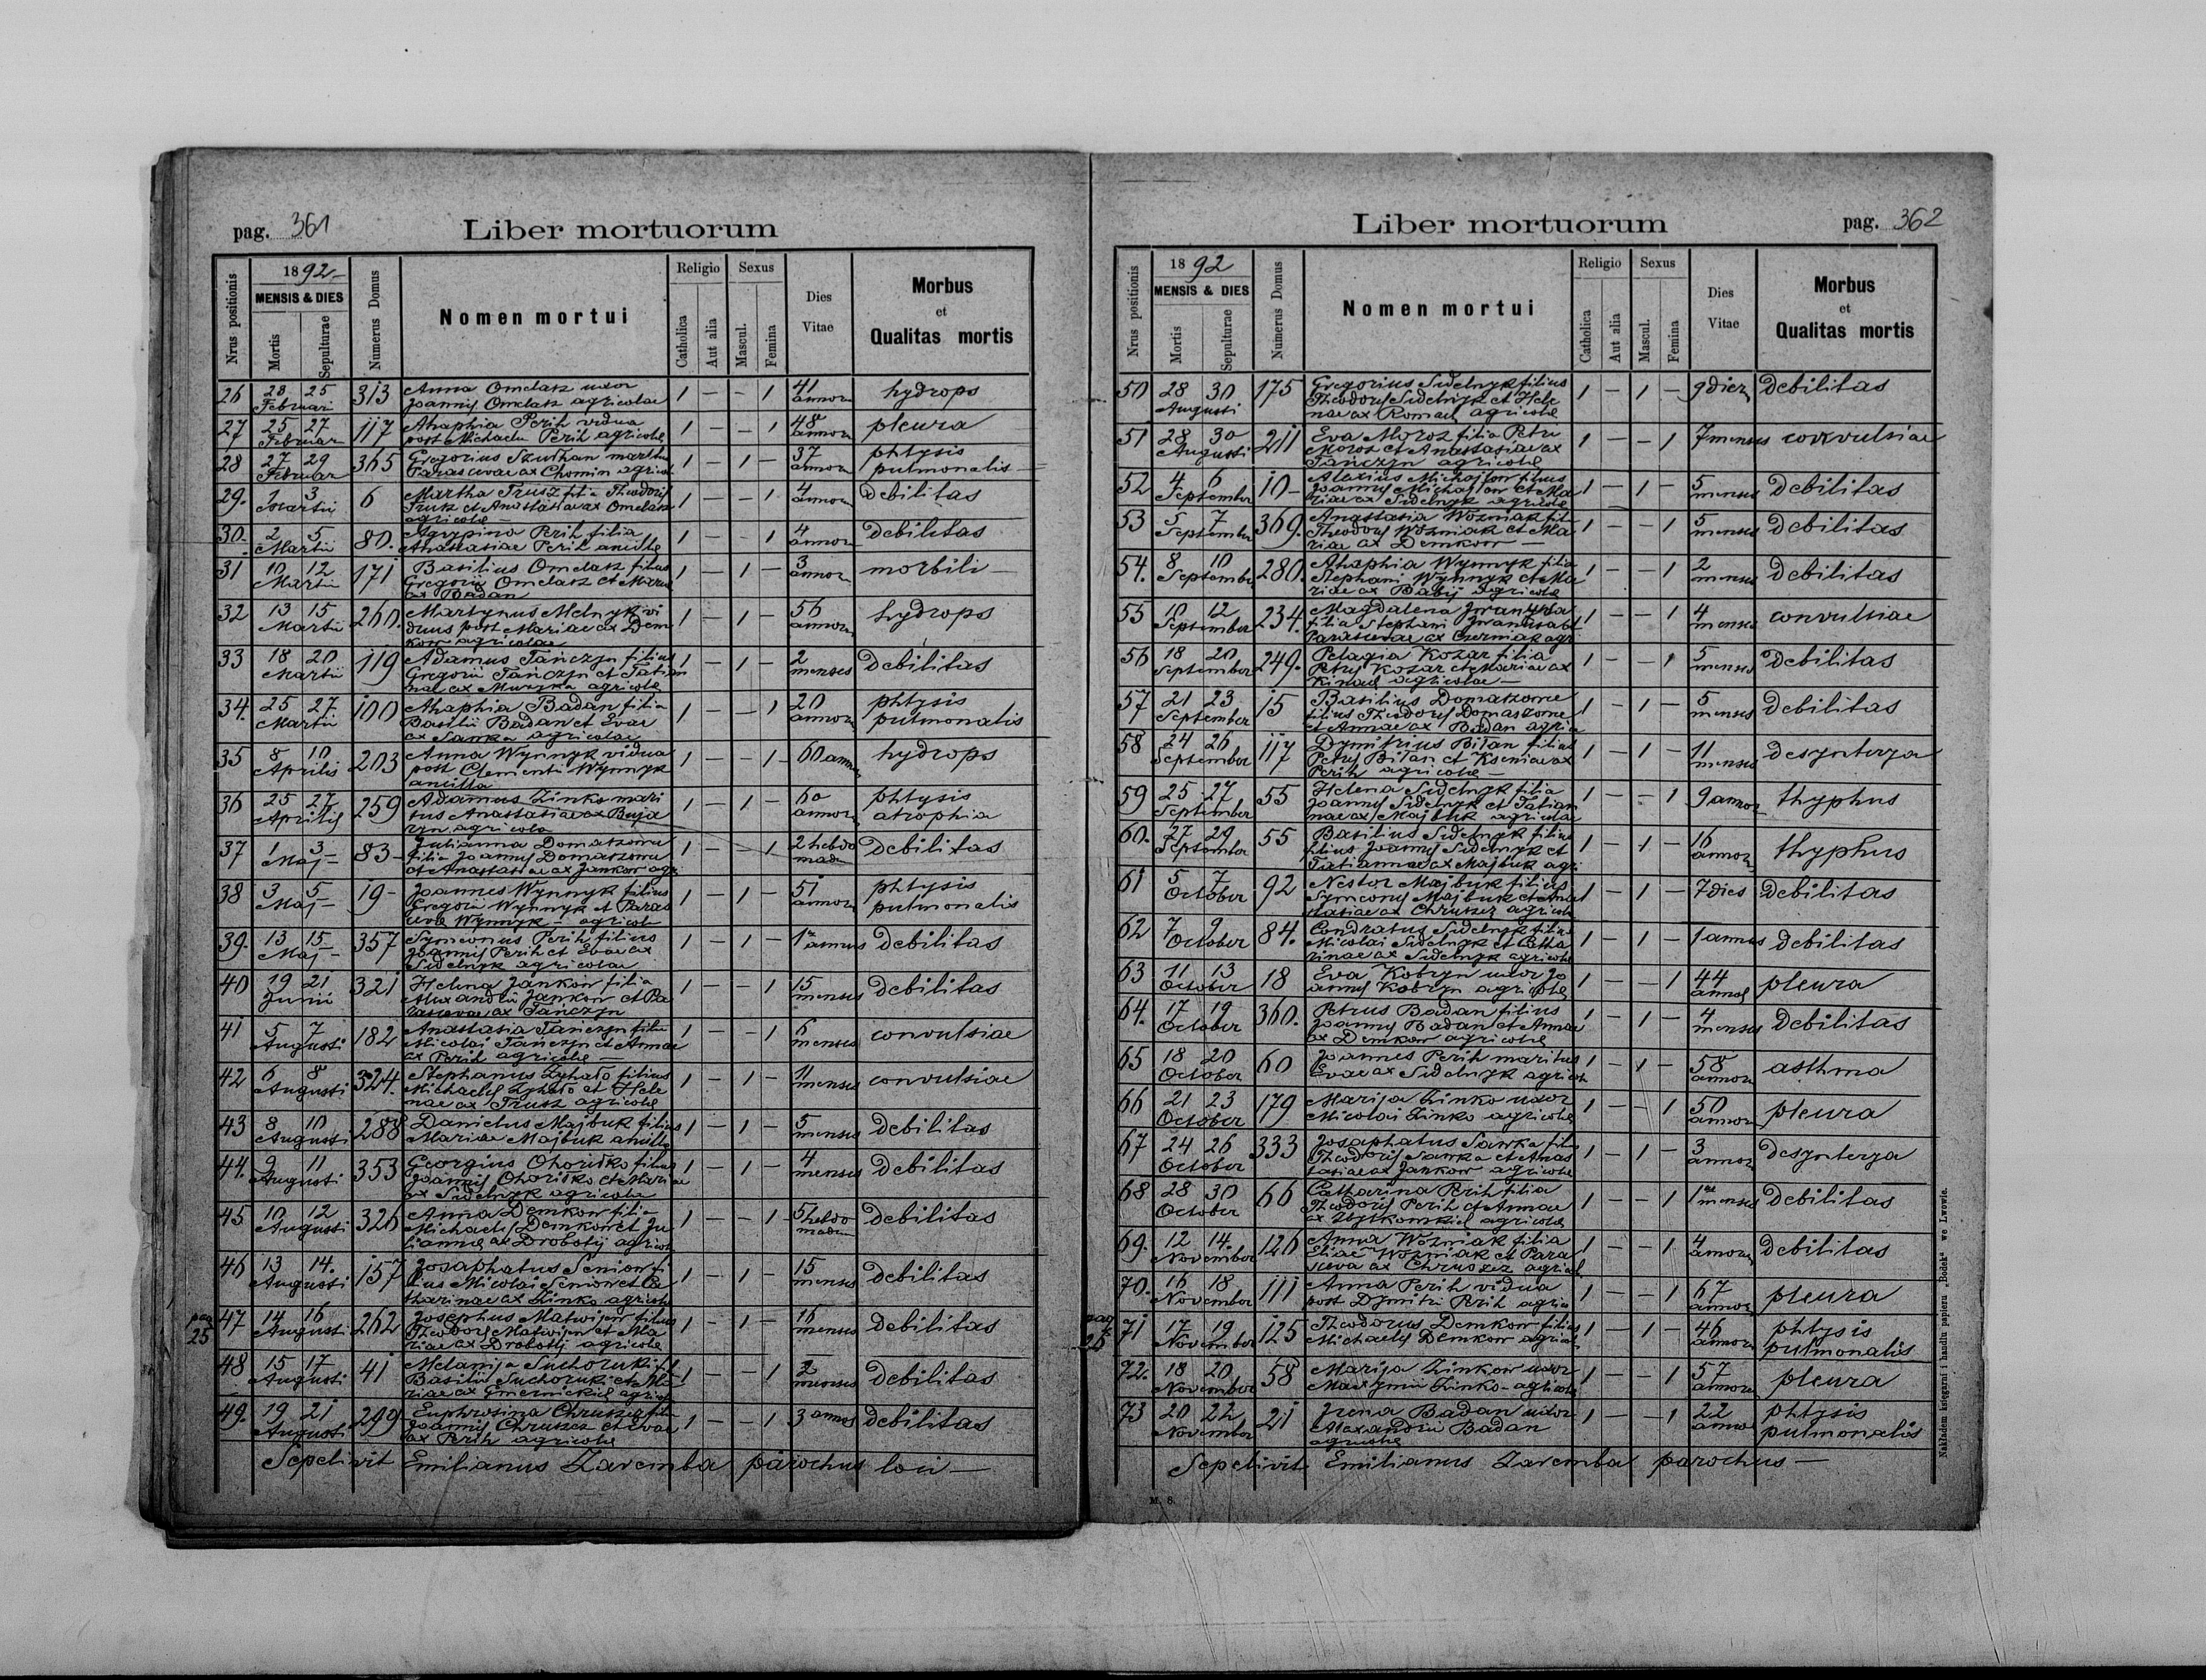 pag. 361 Liber mortuorum
Nrus positionis
1892
MENSIS & DIES
Mortis
Sepulturae
Numerus Domus
Nomen mortui
Religio
Catholica
Aut alia
Sexus
Mascul.
Femina
Dies Vitae
Morbus
et
Qualitas mortis
26 28 25 313 Anna Omelasz uxor 1 – – 1 41 hydrops
Februari Joannis Omelasz agricolae annor
27 25 27 117 Ahaphia Perih vidua 1 – – 1 48 pleura
Februar post Michaelu Perih agricolae annor
28 27 29 365 Gregorius maritus 1 – 1 – 37 phtysis
Februar Parascevae ax Chomin agricol annor pulmonalis
29. 1 3 6 Martha Trusz filia Theodorij 1 – – 1 4 Debilitas
Martii Trusz et Anastasiae ax Omelasz annor
agricolae
30. 2 5 80. Agrypina Perih filia 1 – – 1 4 Debilitas
Martii Anastasiae Perih ancillae annor
31 10 12 171 Basilius Omelasz filius 1 – 1 – 3 morbili
Martii Gregorii Omelasz et Mariae annor
ax Badan
32 13 15 260. Martynus Melnyk vi 1 – 1 – 56 hydrops
Martii duus post Mariae ax Dem annor
kow agricolae
33 18 20 119 Adamus Tańczyn filius 1 – 1 – 2 Debilitas
Martii Gregorii Tańczyn et Tatian menses
nae ax Muzyka agricolae
34. 25 27 100 Ahaphia Badan filia 1 – – 1 20 phtysis
Martii Basilii Badan et Evae annor pulmonalis
ax Sawka agricolae
35 8 10 203 Anna Wynnyk vidua 1 – – 1 60 annor hydrops
Aprilis post Clementi Wynnyk
ancilla
36 25 27 259 Adamus Zinko mari 1 – 1 – 60 phtysis
Aprilis tus Anastasiae ax Buja annor atrophia
zyn agricola
37 1 3 83 Julianna Domaszowe 1 – – 1 2 hebdo Debilitas
Maj filia Joannis Domaszowe madu
et Anastasiae ax Jankow agr
38 3 5 19 Joannes Wynnyk filius 1 – 1 – 51 phtysis
Maj Gregorii Wynnyk et Paras annor pulmonalis
ceva Wynnyk – agricol
39. 13 15 357 Symeonus Perih filius 1 – 1 – 1 annus Debilitas
Maj Joannis Perih et Evae ax
Sidelnyk agricolae
40 19 21 321 Helena Jankow filia 1 – – 1 15 Debilitas
Junii Alexandrii Jankow et Pa menses
rascevae ax Tańczyn
41 5 7 182 Anastasia Tańczyn filia 1 – – 1 6 convulsiae
Augusti Micolai Tańczyn et Annae menses
ax Perih agricolae
42 6 8 324. Stephanus Zyhało filius 1 – 1 – 11 convulsiae
Augusti Michaelis Zyhało et Hele menses
nae ax Trusz agricolae
43 8 10 288 Danielus Majbuk filius 1 – 1 – 5 Debilitas
Augusti Mariae Majbuk ancilla menses
44. 9 11 353 Georgius Ohoridko filius 1 – 1 – 4 Debilitas
Augusti Joannis Ohoridko et Mariae menses
ax Sidelnyk agricolae
45 10 12 326 Anna Demkow filia 1 – – 1 5 hebdo Debilitas
Augusti Michaelis Demkow et Ju madu
liannae ax Drobotij agricol
46 13 14. 157 Josaphatus Seniow fi 1 – 1 – 15 Debilitas
Augusti lius Micolai Seniow et Ca menses
tharinae ax Zinko agricolae
pag 25
47 14 16 262 Josephus Matwijow filius 1 – 1 – 16 Debilitas
Augusti Theodorij Matwijow et Ma menses
riae ax Drobotij agricolae
48 15 17 41 Melanija Suchoruki fi 1 – – 1 2 Debilitas
Augusti Basilii Suchoruki et Ma menses
riae ax agricol
49. 19 21 299 Euphrosina Chruszcz filia 1 – – 1 3 annos Debilitas
Augusti Joannis Chruszcz et Evae
ax Perih agricolae
Sepelivit Emilianus Zaremba parochus loci

Liber mortuorum pag. 362
Nrus positionis
1892
MENSIS & DIES
Mortis
Sepulturae
Numerus Domus
Nomen mortui
Religio
Catholica
Aut alia
Sexus
Mascul.
Femina
Dies Vitae
Morbus
et
Qualitas mortis
50 28 30 175 Gregorius Sidelnyk filius 1 – 1 – 9 dier Debilitas
Augusti Theodorij Sidelnyk et Hele
nae ax Romach agricolae
51 28 30 211 Eva Moroz filia Petri 1 – – 1 7 menses convulsiae
Augusti Moroz et Anastasiae ax
Tańczyn agricolae
52 4 6 10 Alexius Michajlow filius 1 – 1 – 5 Debilitas
September Joannis Michajlow et Ma menses
riae ax Sidelnyk agricolae
53 5 7 369. Anastasia Wozniak fil 1 – – 1 5 Debilitas
September Theodorij Wozniak et Ma menses
riae ax Demkow
54. 8 10 280. Ahaphia Wynnyk filia 1 – – 1 2 Debilitas
September Stephani Wynnyk et Ma menses
riae ax Babij agricolae
55 10 12 234. Magdalena 1 – – 1 4 convulsiae
September filia Stephani et menses
Parascevae ax Czerniak agri
56 18 20 249. Pelagia Kozar filia 1 – – 1 5 Debilitas
September Petrij Kozar et Mariae ax menses
Kinach agricolae
57 21 23 15 Basilius Domaszowe 1 – 1 – 5 Debilitas
September filius Theodorij Domaszowe menses
et Annae ax Badan agric
58 24 26 117 Dymitrius Biłan filius 1 – 1 – 11 desynterya
September Petrij Biłan et Kseniae ax menses
Perih agricolae
59 25 27 55 Helena Sidelnyk filia 1 – – 1 9 annor thyphus
September Joannis Sidelnyk et Tatian
nae ax Majbuk agricolae
60. 27 29 55 Basilius Sidelnyk filius 1 – 1 – 16 thyphus
September filius Joannis Sidelnyk et annor
Tatiannae ax Majbuk agri
61 5 7 92 Nestor Majbuk filius 1 – 1 – 7 dies Debilitas
October Symeonij Majbuk et Anas
tasiae ax Chruszcz agricolae
62 7 9 84. Condratus Sidelnyk filius 1 – 1 – 1 annus Debilitas
October Micolai Sidelnyk et Catha
rinae ax Sidelnyk agricolae
63 11 13 18 Eva Kobryn uxor Jo 1 – – 1 44 pleura
October annis Kobryn agricolae annos
64. 17 19 360. Petrus Badan filius 1 – 1 – 4 Debilitas
October Joannis Badan et Annae menses
ax Demkow agricolae
65 18 20 60 Joannes Perih maritus 1 – 1 – 58 asthma
October Evae ax Sidelnyk agricol annor
66 21 23 179 Marija Zinko uxor 1 – – 1 50 pleura
October Micolai Zinko agricolae annor
67 24 26 333 Josaphatus Sawka filius 1 – 1 – 3 Desynterya
October Theodorij Sawka et Anas annor
tasiae ax Jankow agricolae
68 28 30 66 Catharina Perih filia 1 – – 1 1 mensus Debilitas
October Theodorij Perih et Annae
ax agricolae
69. 12 14. 126 Anna Wozniak filia 1 – – 1 4 Debilitas
November Eliae Wozniak et Para annor
sceva ax Chruszcz agricol
70. 16 18 111 Anna Perih vidua 1 – – 1 67 pleura
November post Dymitri Perih agric annor
pag 26
71 17 19 125 Theodorus Demkow filius 1 – 1 – 46 phtysis
November Michaelis Demkow agricol annor pulmonalis
72. 18 20 58 Marija Zinkow uxor 1 – – 1 57 pleura
November Maxymii Zinko agricolae annor
73 20 22 21 Irena Badan uxor 1 – – 1 22 phtysis
November Alexandrii Badan annor pulmonalis
agricolae
Sepelivit Emilianus Zaremba parochus
M. 8.
Nakładem księgarni i handlu papieru „Bodek“ we Lwowie.